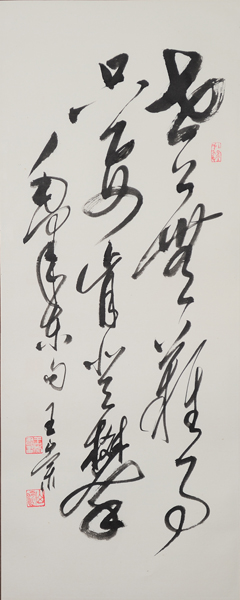 世上無難事
只要肯登攀
毛澤東句 王